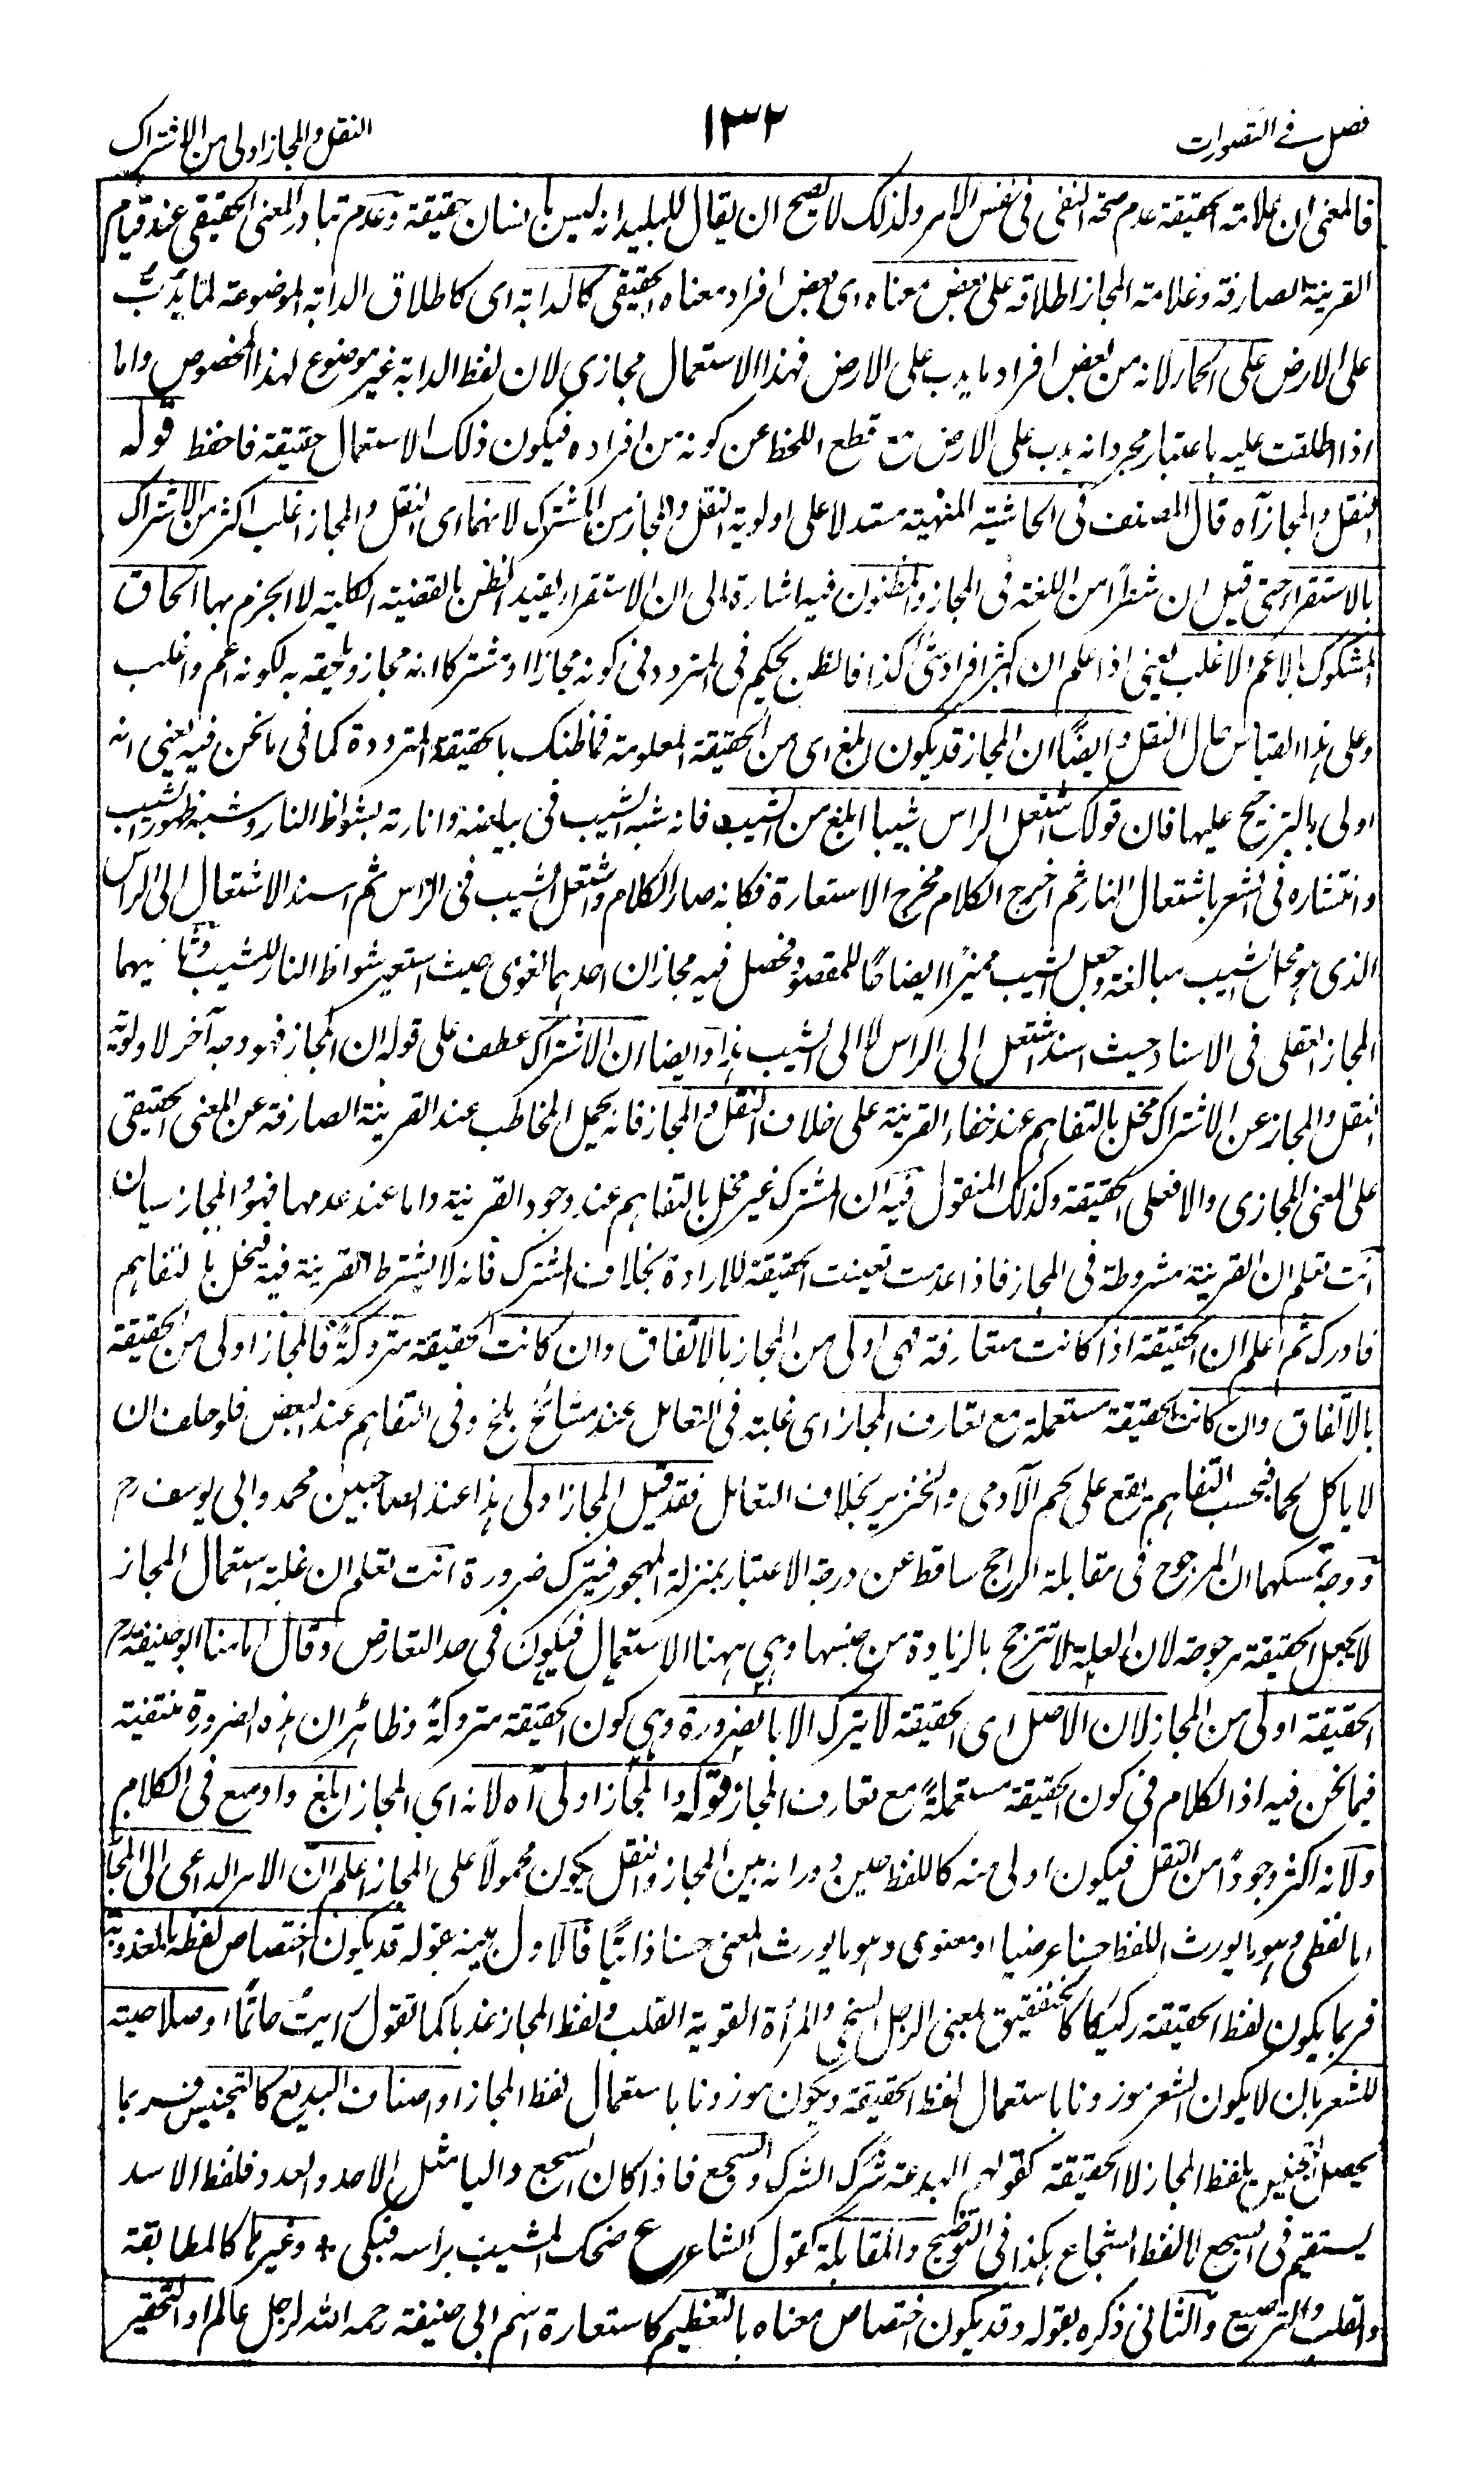 فصل فے التصورات
١٣٢
النقل والمجاز اولى من الاشتراك
فالمعنى ان علامته الحقيقة عدم صحة النفى فى نفس الامر ولذلك لا يصح ان يقال للبليد انه ليس بانسان حقيقة وعدم تبادر المعنى الحقيقى عند قيام
القرينة الصارفة وعلامته المجاز اطلاقه على بعض معناه اى بعض افراد معناه الحقيقى كالدابة اى كاطلاق الدابة الموضوعة لما يَدُبُّ
على الارض على الحمار لانه من بعض افراد ما يدب على الارض فهذا الاستعمال مجازى لان لفظ الدابة غير موضوع لهذا المخصوص واما
اذا اطلقت عليه باعتبار مجرد انه يدب على الارض مع قطع اللحظ عن كونه من افراده فيكون ذلك الاستعمال حقيقة فاحفظ قوله
النقل والمجاز آه قال المصنف فى الحاشية المنهية مستدلا على اولوية النقل والمجاز من المشترك لانهما اى النقل والمجاز اغلب اكثر من الاشتراك
بالاستقراء حتى قيل ان شطرًا من اللغة فى المجاز والمظنون فيه اشارة الى ان الاستقراء يفيد الظن بالقضية الكلية لا الجزم بها الحاق
المشكوك بالاعم الاغلب يعنى اذا علم ان اكثر افراد شئ كذا فالظن يحكم فى المتردد فى كونه مجازا او مشتركا انه مجاز ويلحقه به لكونه اعم واغلب
وعلى هذا القياس حال النقل وايضًا ان المجاز قد يكون ابلغ اى من الحقيقة المعلومة فما ظنك بالحقيقة المترددة كما فى ما نحن فيه يعنى انه
اولى بالترجيح عليها فان قولك اشتعل الراس شيبا ابلغ من الشيب فانه شبه الشيب فى بياضه وانارته بشواظ النار وشبه ظهور الشيب
وانتشاره فى الشعر باشتعال النار ثم اخرج الكلام مخرج الاستعارة فكانه صار الكلام واشتعل الشيب فى الراس ثم اسند الاشتعال الى الراس
الذى هو محل الشيب مبالغة وجعل الشيب مميزًا ايضاحًا للمقصود فحصل فيه مجازان احدهما لغوى حيث استعير شواظ النار للشيب وثانيهما
المجاز العقلى فى الاسناد حيث اسند اشتعل الى الراس لا الى الشيب هذا وايضا ان الاشتراك عطف على قوله ان المجاز فهو وجه آخر لاولوية
النقل والمجاز عن الاشتراك مخل بالتفاهم عند خفاء القرينة على خلاف النقل والمجاز فانه يحمل المخاطب عند القرينة الصارفة عن المعنى الحقيقى
على المعنى المجازى والا فعلى الحقيقة وكذلك المنقول فيه ان المشترك غير مخل بالتفاهم عند وجود القرينة واما عند عدمها فهو والمجاز سيان
انت تعلم ان القرينة مشروطة فى المجاز فاذا عدمت تعينت الحقيقة للارادة بخلاف المشترك فانه لا يشترط القرينة فيه فيخل بالتفاهم
فادرك ثم اعلم ان الحقيقة اذا كانت متعارفة فهى اولى من المجاز بالاتفاق وان كانت الحقيقة متروكةً فالمجاز اولى من الحقيقة
بالاتفاق وان كانت الحقيقة مستعملة مع تعارف المجاز اى غلبته فى التعامل عند مشائخ بلخ وفى التفاهم عند البعض فلو حلف ان
لا ياكل لحما فبحسب التفاهم يقع على لحم الآدمى والخنزير بخلاف التعامل فقد قيل المجاز اولى هذا عند الصاحبين محمد وابى يوسف رح
ووجه تمسكهما ان المرجوح فى مقابلة الراجح ساقط عن درجة الاعتبار بمنزلة المهجور فيترك ضرورة انت تعلم ان غلبة استعمال المجاز
لا يجعل الحقيقة مرجوحة لان العلة لا تترجح بالزيادة من جنسها وهى ههنا الاستعمال فيكون فى حد التعارض وقال امامنا ابو حنيفة رح
الحقيقة اولى من المجاز لان الاصل اى الحقيقة لا يترك الا بالضرورة وهى كون الحقيقة متروكةً وظاهر ان هذه الضرورة منتفية
فيما نحن فيه اذ الكلام فى كون الحقيقة مستعملةً مع تعارف المجاز قوله والمجاز اولى آه لانه اى المجاز ابلغ واوسع فى الكلام
ولانه اكثر وجودًا من النقل فيكون اولى منه كاللفظ حين دورانه بين المجاز والنقل يكون محمولًا على المجاز اعلم ان الامر الداعى الى المجاز
اما لفظى وهو ما يورث اللفظ حسنا عرضيا او معنوى وهو ما يورث المعنى حسنا ذاتيًا فالاول بينه بقوله قد يكون اختصاص لفظه بالعذوبة
فربما يكون لفظ الحقيقة ركيكا كالخنفقيق لمعنى الرجل السخى والمرأة القوية القلب ولفظ المجاز عذبا كما تقول رايتُ حاتمًا او صلاحيته
للشعر بان لا يكون الشعر موزونا باستعمال لفظ الحقيقة ويكون موزونا باستعمال لفظ المجاز او اصناف البديع كالتجنيس فربما
يحصل التجنيس بلفظ المجاز لا الحقيقة كقولهم البدعة شَرَك الشرك والسجع فاذا كان السجع داليا مثل الاحد والعدد فلفظ الاسد
يستقيم فى السجع لا لفظ الشجاع هكذا فى التوضيح والمقابلة كقول الشاعر ع ضحك المشيب براسه فبكى + وغيرها كالمطابقة
والقلب والترصيع والثانى ذكره بقوله وقد يكون اختصاص معناه بالتعظيم كاستعارة اسم ابى حنيفة رحمه الله لرجل عالم او التحقير